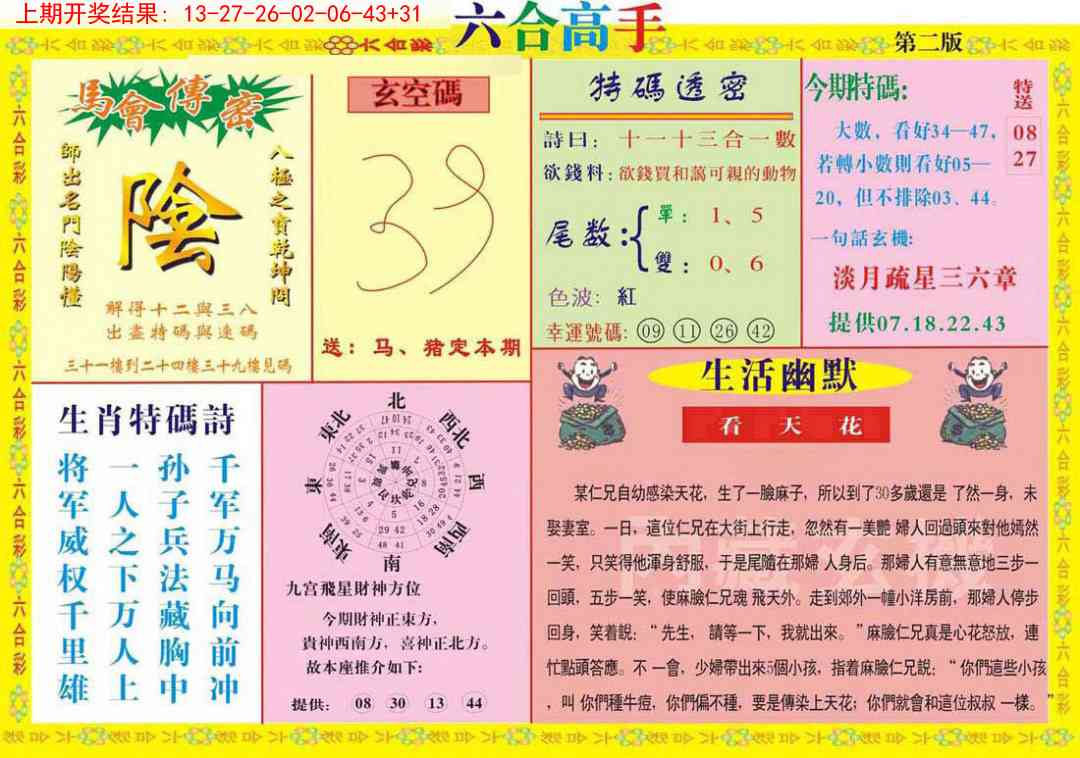 上期开奖结果: 13-27-26-02-06-43+31
六合高手
第二版
六合彩
馬會傳密
師出名門陰陽懂
陰
八極之寶乾坤問
解得十二與三八
出盡特碼與連碼
三十一樓到二十四樓三十九樓見碼
玄空碼
送：马、猪定本期
特碼透密
詩曰：十一十三合一數
欲錢料：欲錢買和藹可親的動物
尾数：
單：1、5
雙：0、6
色波：紅
幸運號碼：09 11 26 42
今期特碼:
特送
08
27
大數，看好34—47,
若轉小數則看好05—
20，但不排除03、44。
一句話玄機:
淡月疏星三六章
提供07.18.22.43
生肖特碼詩
千军万马向前冲
孙子兵法藏胸中
一人之下万人上
将军威权千里雄
北
西北
西
西南
南
東南
東
東北
九宫飛星財神方位
今期財神正東方，
貴神西南方，喜神正北方。
故本座推介如下:
提供: 08 30 13 44
生活幽默
看天花
某仁兄自幼感染天花，生了一臉麻子，所以到了30多歲還是 了然一身，未
娶妻室。一日，這位仁兄在大街上行走，忽然有一美艷 婦人回過頭來對他嫣然
一笑，只笑得他渾身舒服，于是尾隨在那婦 人身后。那婦人有意無意地三步一
回頭，五步一笑，使麻臉仁兄魂 飛天外。走到郊外一幢小洋房前，那婦人停步
回身，笑着說：“先生， 請等一下，我就出來。”麻臉仁兄真是心花怒放，連
忙點頭答應。不 一會，少婦帶出來5個小孩，指着麻臉仁兄說：“你們這些小孩
，叫 你們種牛痘，你們偏不種，要是傳染上天花；你們就會和這位叔叔 一樣。”